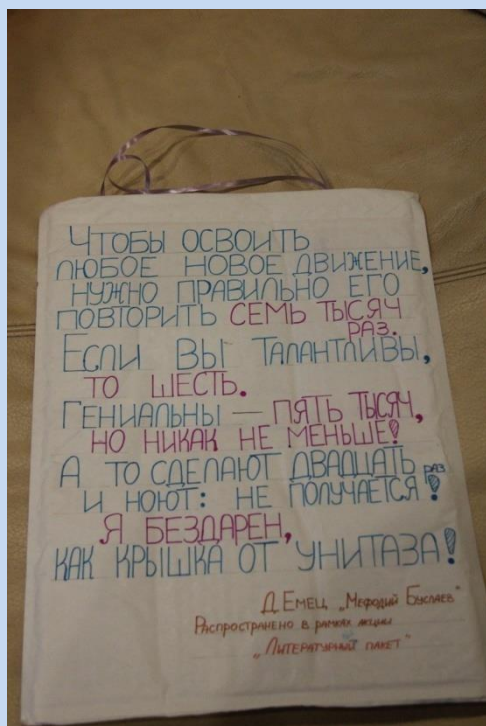 Чтобы освоить
любое новое движение,
нужно правильно его
повторить семь тысяч
раз.
Если вы талантливы,
то шесть.
Гениальны — пять тысяч,
но никак не меньше!
А то сделают двадцать раз
и ноют: не получается!
Я бездарен,
как крышка от унитаза!
Д. Емец „Мефодий Буслаев"
Распространено в рамках акции
„Литературный пакет"